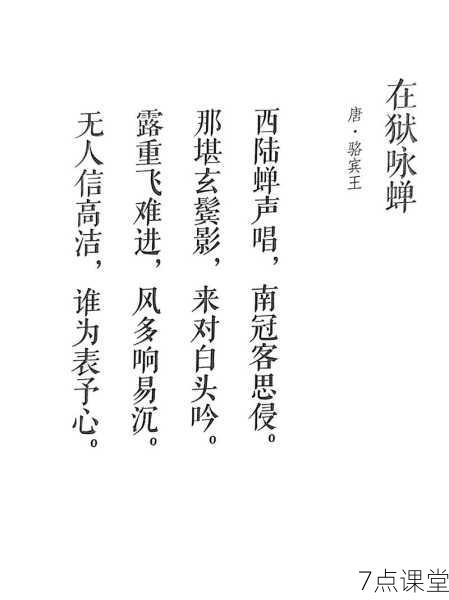 在狱咏蝉
唐·骆宾王
西陆蝉声唱，南冠客思侵。
那堪玄鬓影，来对白头吟。
露重飞难进，风多响易沉。
无人信高洁，谁为表予心。
7点课堂